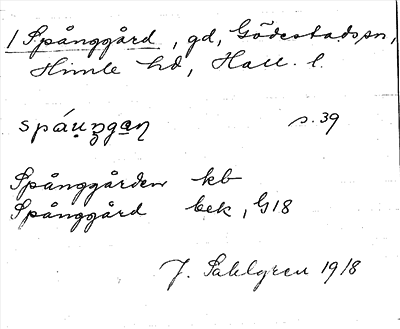 1 Spånggård, gd, Gödestads sn,
Himle hd, Hall. l.
spáu̯ŋgaɳ s. 39
Spånggården kb
Spånggård bek, G18
J. Sahlgren 1918